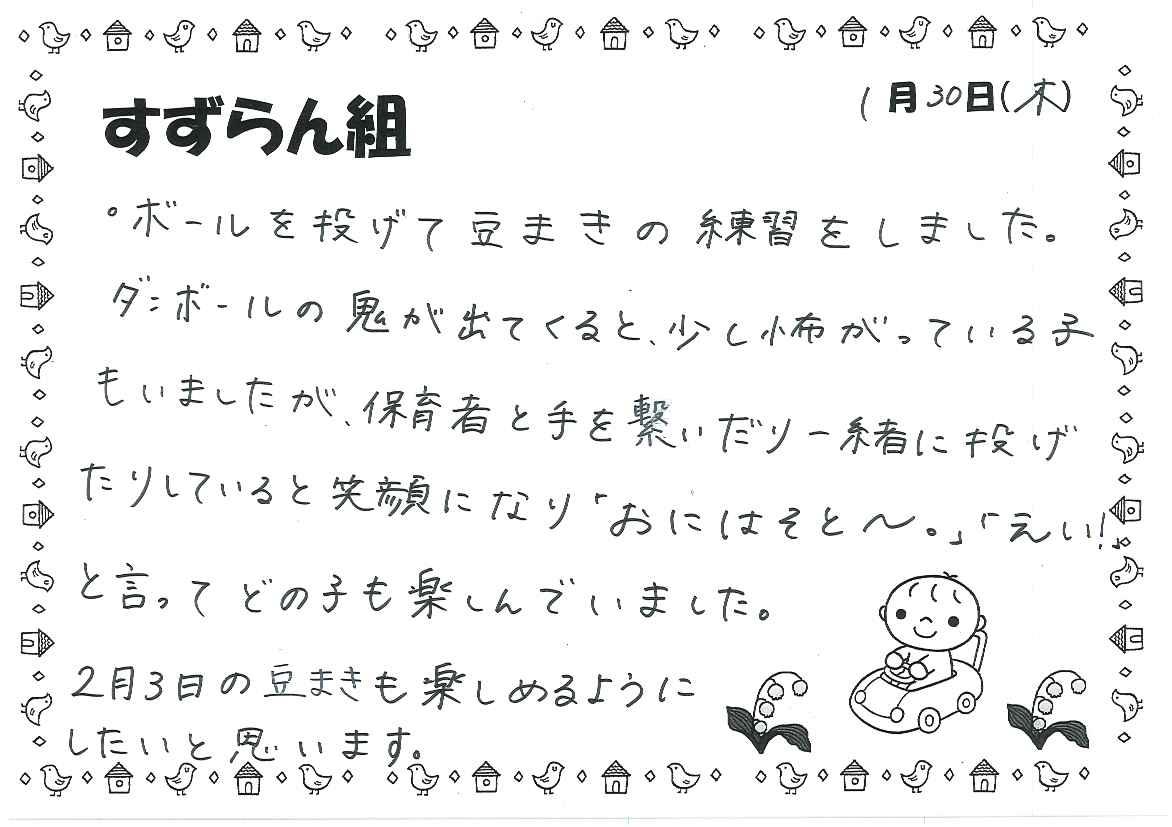 すずらん組
1月30日(木)
°ボールを投げて豆まきの練習をしました。
ダンボールの鬼が出てくると、少し怖がっている子
もいましたが、保育者と手を繋いだり一緒に投げ
たりしていると笑顔になり「おにはそと～。」「えい!」
と言ってどの子も楽しんでいました。
2月3日の豆まきも楽しめるように
したいと思います。